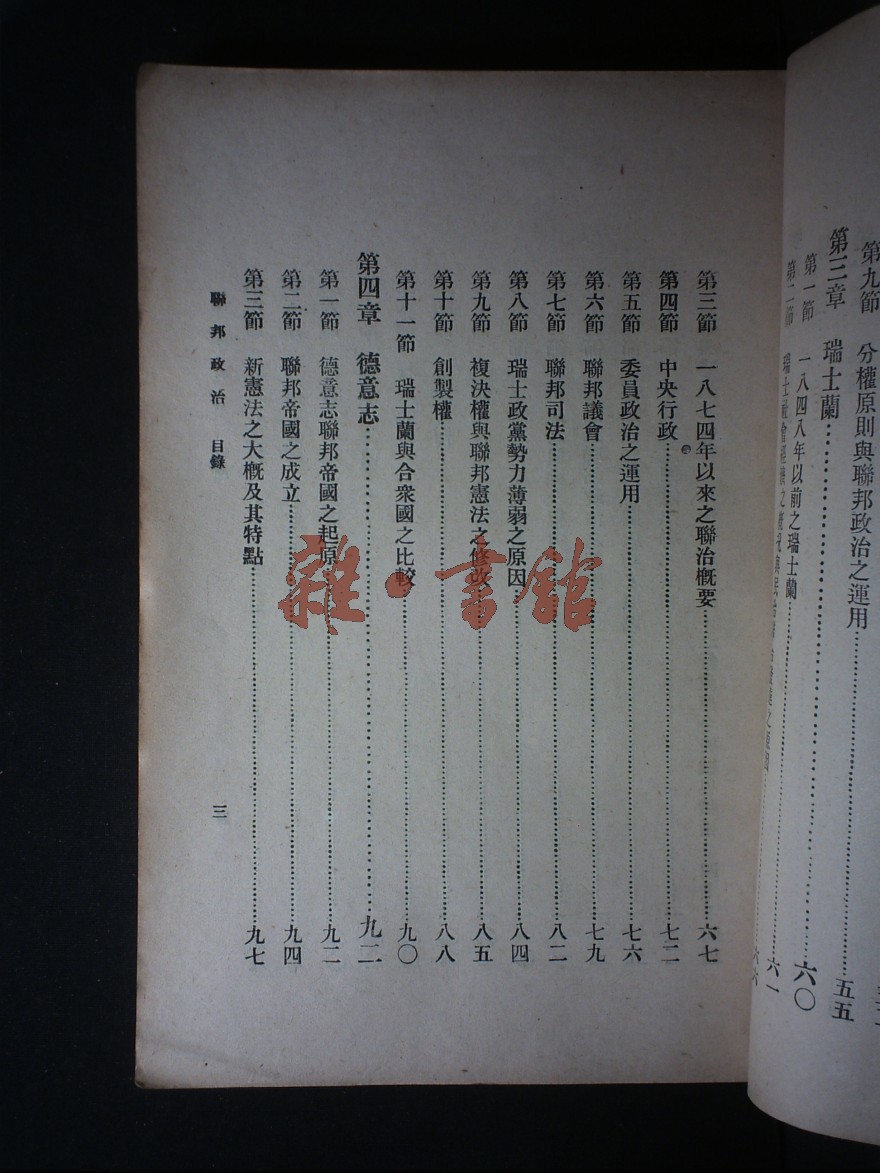 第九節 分權原則與聯邦政治之運用 五五
第三章 瑞士蘭 六〇
第一節 一八四八年以前之瑞士蘭 六一
第二節 瑞士社會 之 六六
第三節 一八七四年以來之聯治概要 六七
第四節 中央行政 七二
第五節 委員政治之運用 七六
第六節 聯邦議會 七九
第七節 聯邦司法 八二
第八節 瑞士政黨勢力薄弱之原因 八四
第九節 複決權與聯邦憲法之修改 八五
第十節 創製權 八八
第十一節 瑞士蘭與合衆國之比較 九〇
第四章 德意志 九二
第一節 德意志聯邦帝國之起原 九二
第二節 聯邦帝國之成立 九四
第三節 新憲法之大概及其特點 九七
聯邦政治 目錄
三
雜·書館